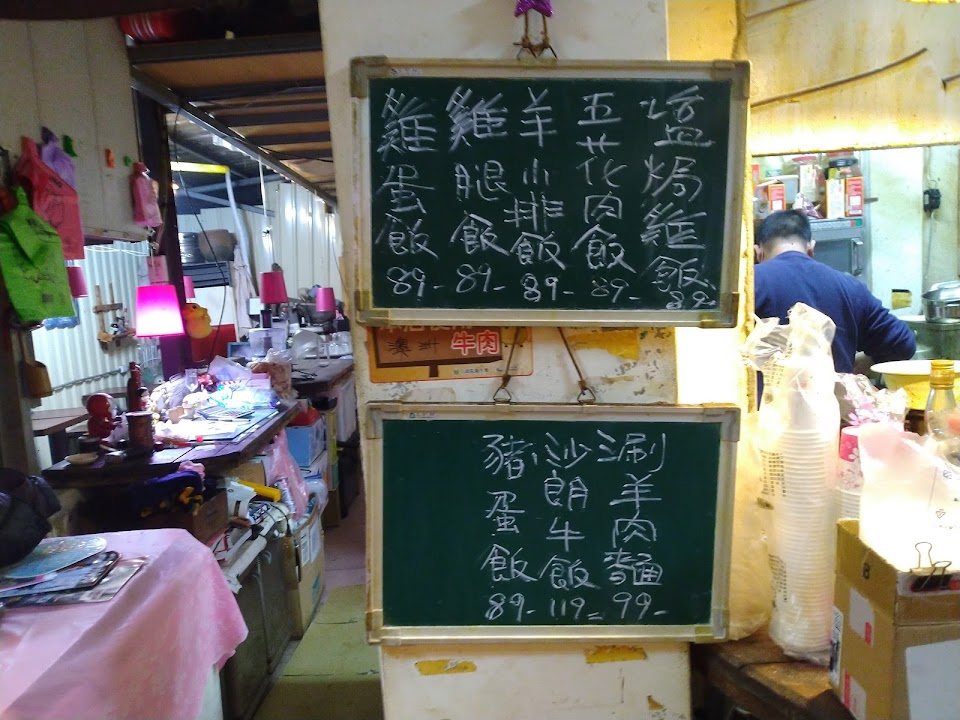 塩焗雞飯 89
五花肉飯 89-
羊小排飯 89-
雞腿飯 89-
雞蛋飯 89-
澳洲牛肉
涮羊肉麵 99-
沙朗牛飯 119=
豬蛋飯 89-